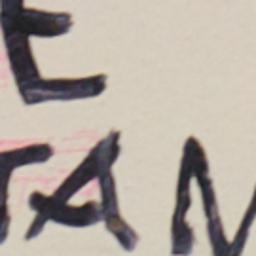 E
TAN